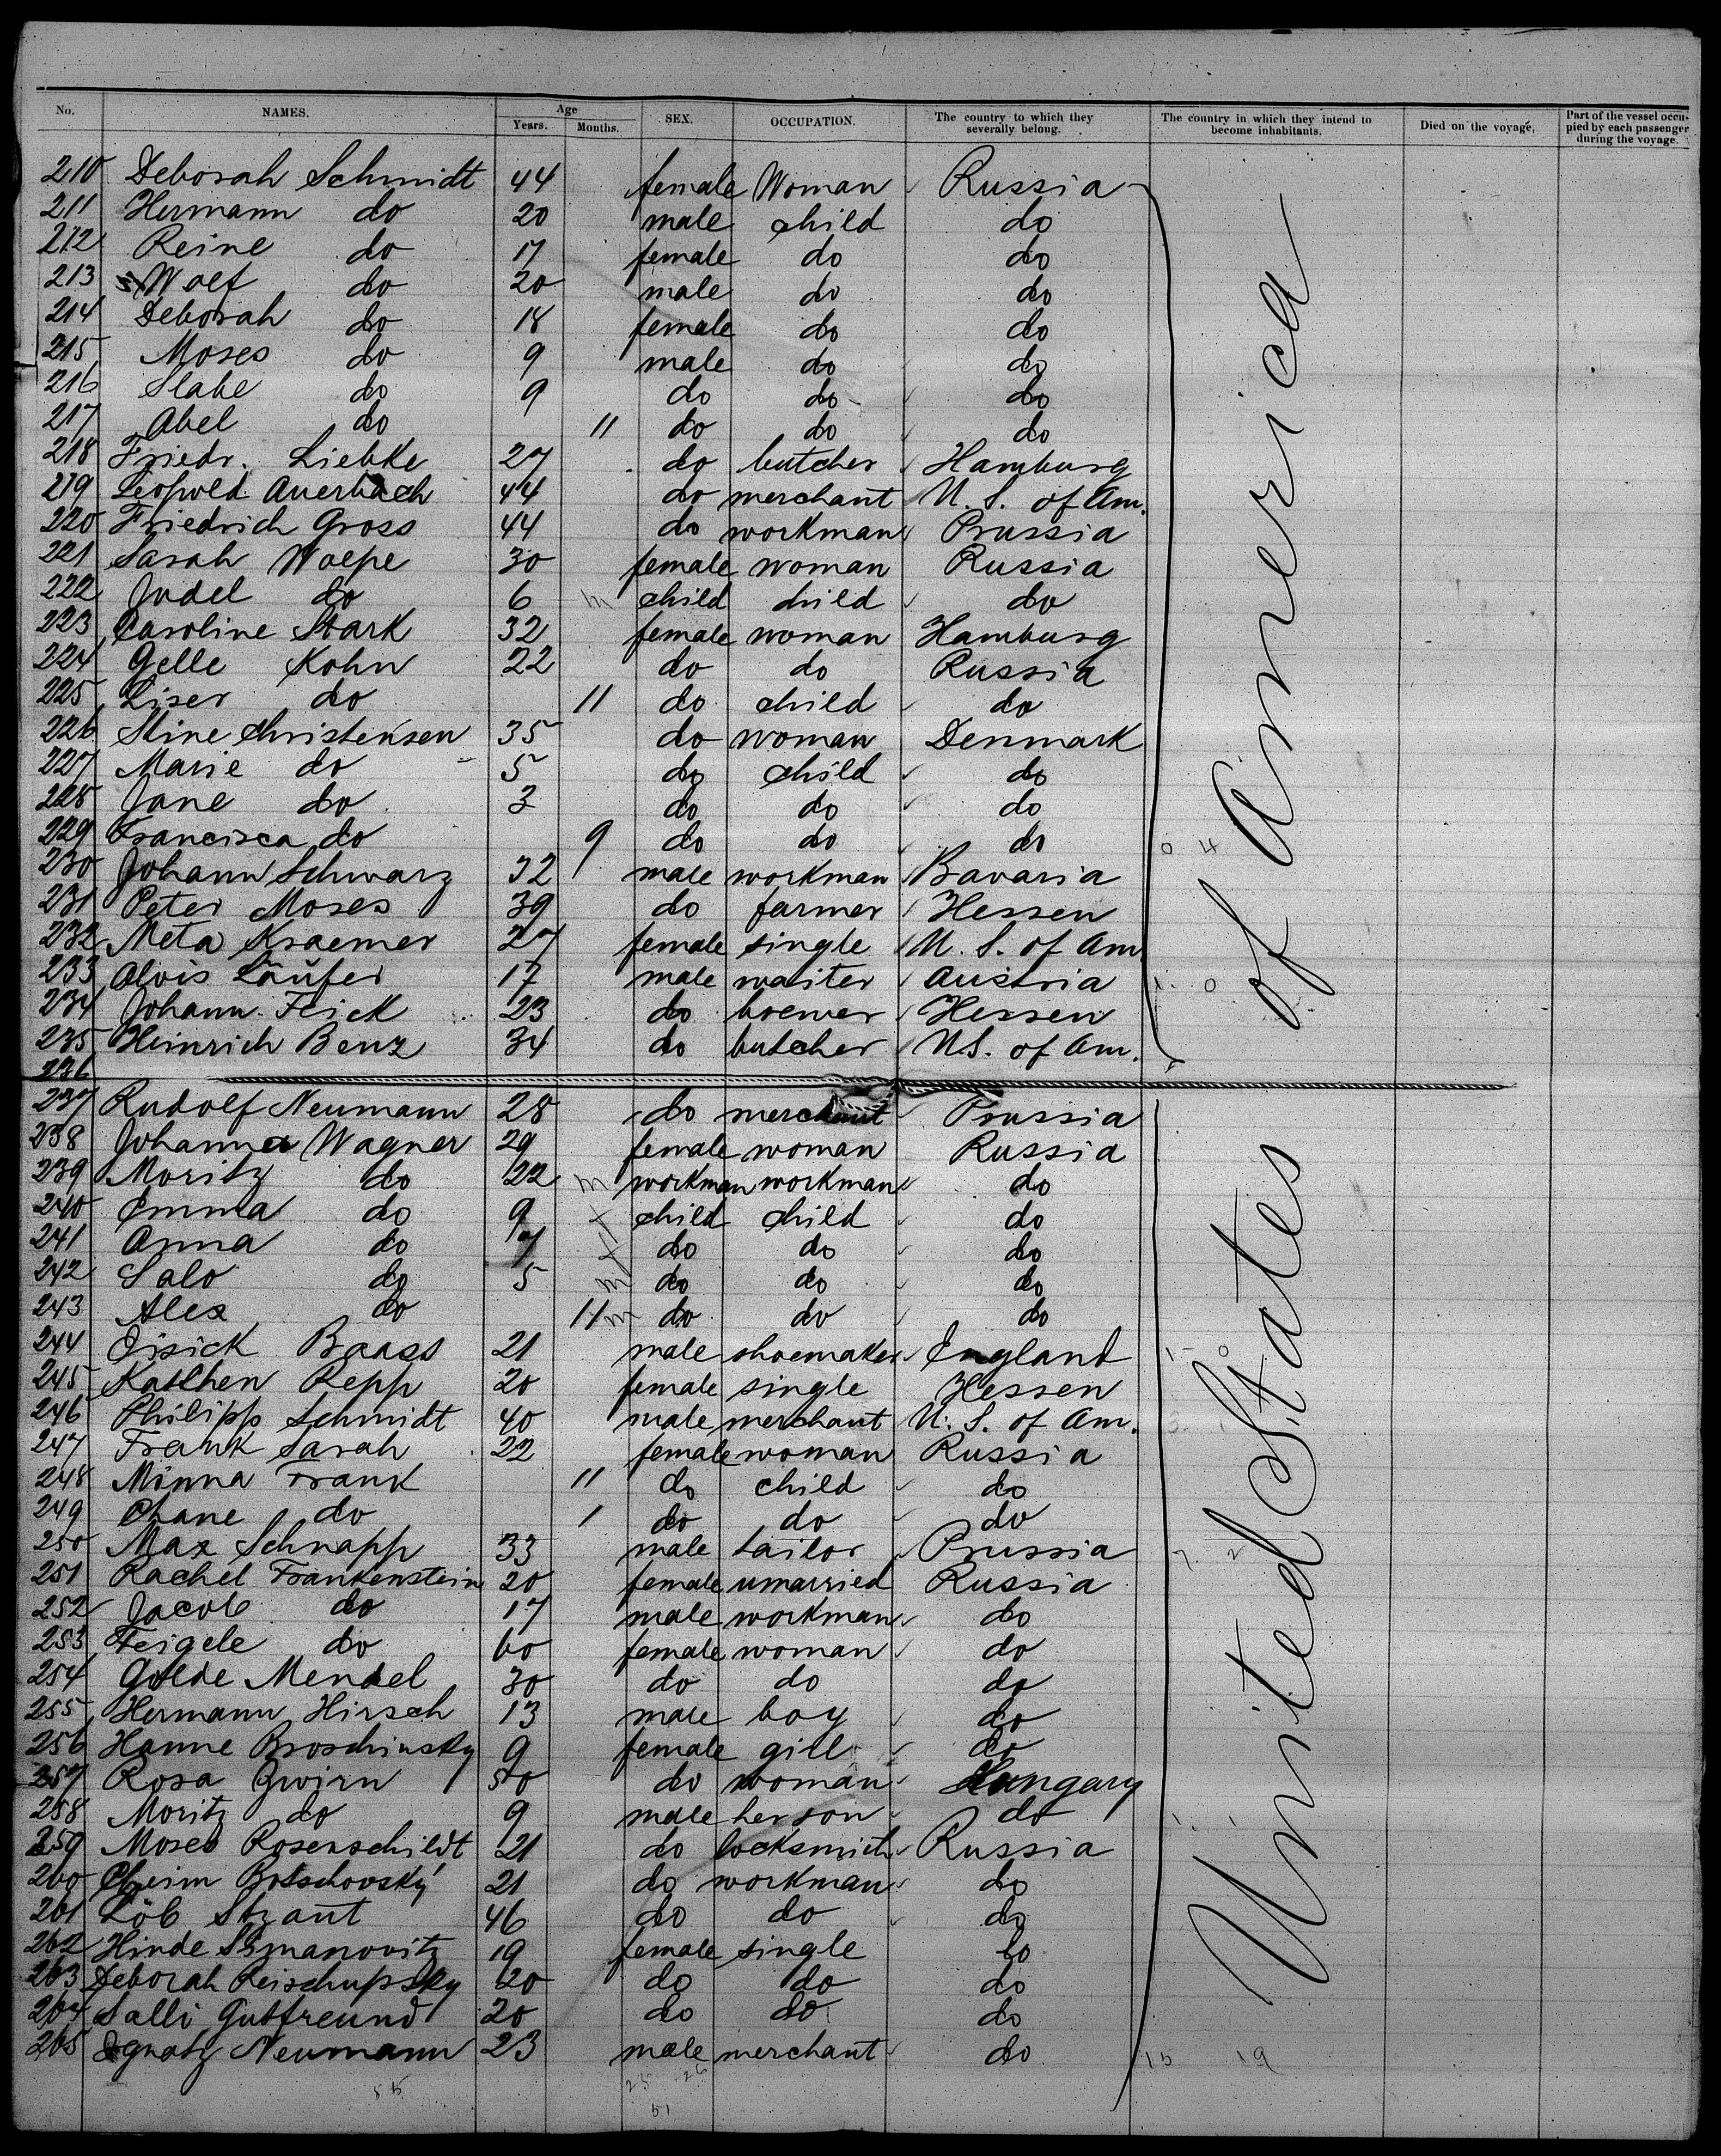 No. NAMES. Age Years. Months. SEX. OCCUPATION. The country to which they severally belong. The country in which they intend to become inhabitants. Died on the voyage. Part of the vessel occupied by each passenger during the voyage.
210 Deborah Schmidt 44 female Woman Russia
211 Hermann do 20 male child do
212 Reine do 17 female do do
213 Wolf do 20 male do do
214 Deborah do 18 female do do
215 Moses do 9 male do do
216 Slabe do 9 do do do
217 Abel do 11 do do do
218 Friedr. Liebke 27 do butcher Hamburg
219 Leopold Auerbach 44 do merchant U. S. of Am.
220 Friedrich Gross 44 do workman Prussia
221 Sarah Wolpe 30 female woman Russia
222 Judel do 6 m child child do
223 Caroline Stark 32 female woman Hamburg
224 Gelle Kohn 22 do do Russia
225 Liser do 11 do child do
226 Stine Christensen 35 do woman Denmark
227 Marie do 5 do child do
228 Jane do 3 do do do
229 Francisca do 9 do do do 0 4
230 Johann Schwarz 32 male workman Bavaria
231 Peter Moses 39 do farmer Hessen
232 Meta Kraemer 27 female single U. S. of Am
233 Alois Läufer 17 male waiter Austria 1 0
234 Johann Flick 23 do brewer Hessen
235 Heinrich Benz 34 do butcher U.S. of Am.
236
237 Rudolf Neumann 28 do merchant Prussia
238 Johanna Wagner 29 female woman Russia
239 Moritz do 22 m workman workman do
240 Emma do 9 f child child do
241 Anna do 7 f do do do
242 Salo do 5 m do do do
243 Alex do 11 m do do do
244 Eisick Baass 21 male shoemaker England 1 0
245 Kathen Repp 20 female single Hessen
246 Philipp Schmidt 40 male merchant U. S. of Am.
247 Frank Sarah 22 female woman Russia
248 Minna Frank 11 do child do
249 Chane do 1 do do do
250 Max Schnapp 33 male tailor Prussia
251 Rachel Frankenstein 20 female unmarried Russia
252 Jacob do 17 male workman do
253 Feigele do 60 female woman do
254 Golde Mendel 30 do do do
255 Hermann Hirsch 13 male boy do
256 Hanne Broschinsky 9 female girl do
257 Rosa Zwirn 50 do woman Hungary
258 Moritz do 9 male her son do
259 Moses Rosenschildt 21 do locksmith Russia
260 Cheim Botschovsky 21 do workman do
261 Löb Strant 46 do do do
262 Hinde Simanovitz 19 female single do
263 Deborah Reischupsky 20 do do do
264 Salli Gutfreund 20 do do do
265 Ignatz Neumann 23 male merchant do 15 19
55 25 26
51
United States of America